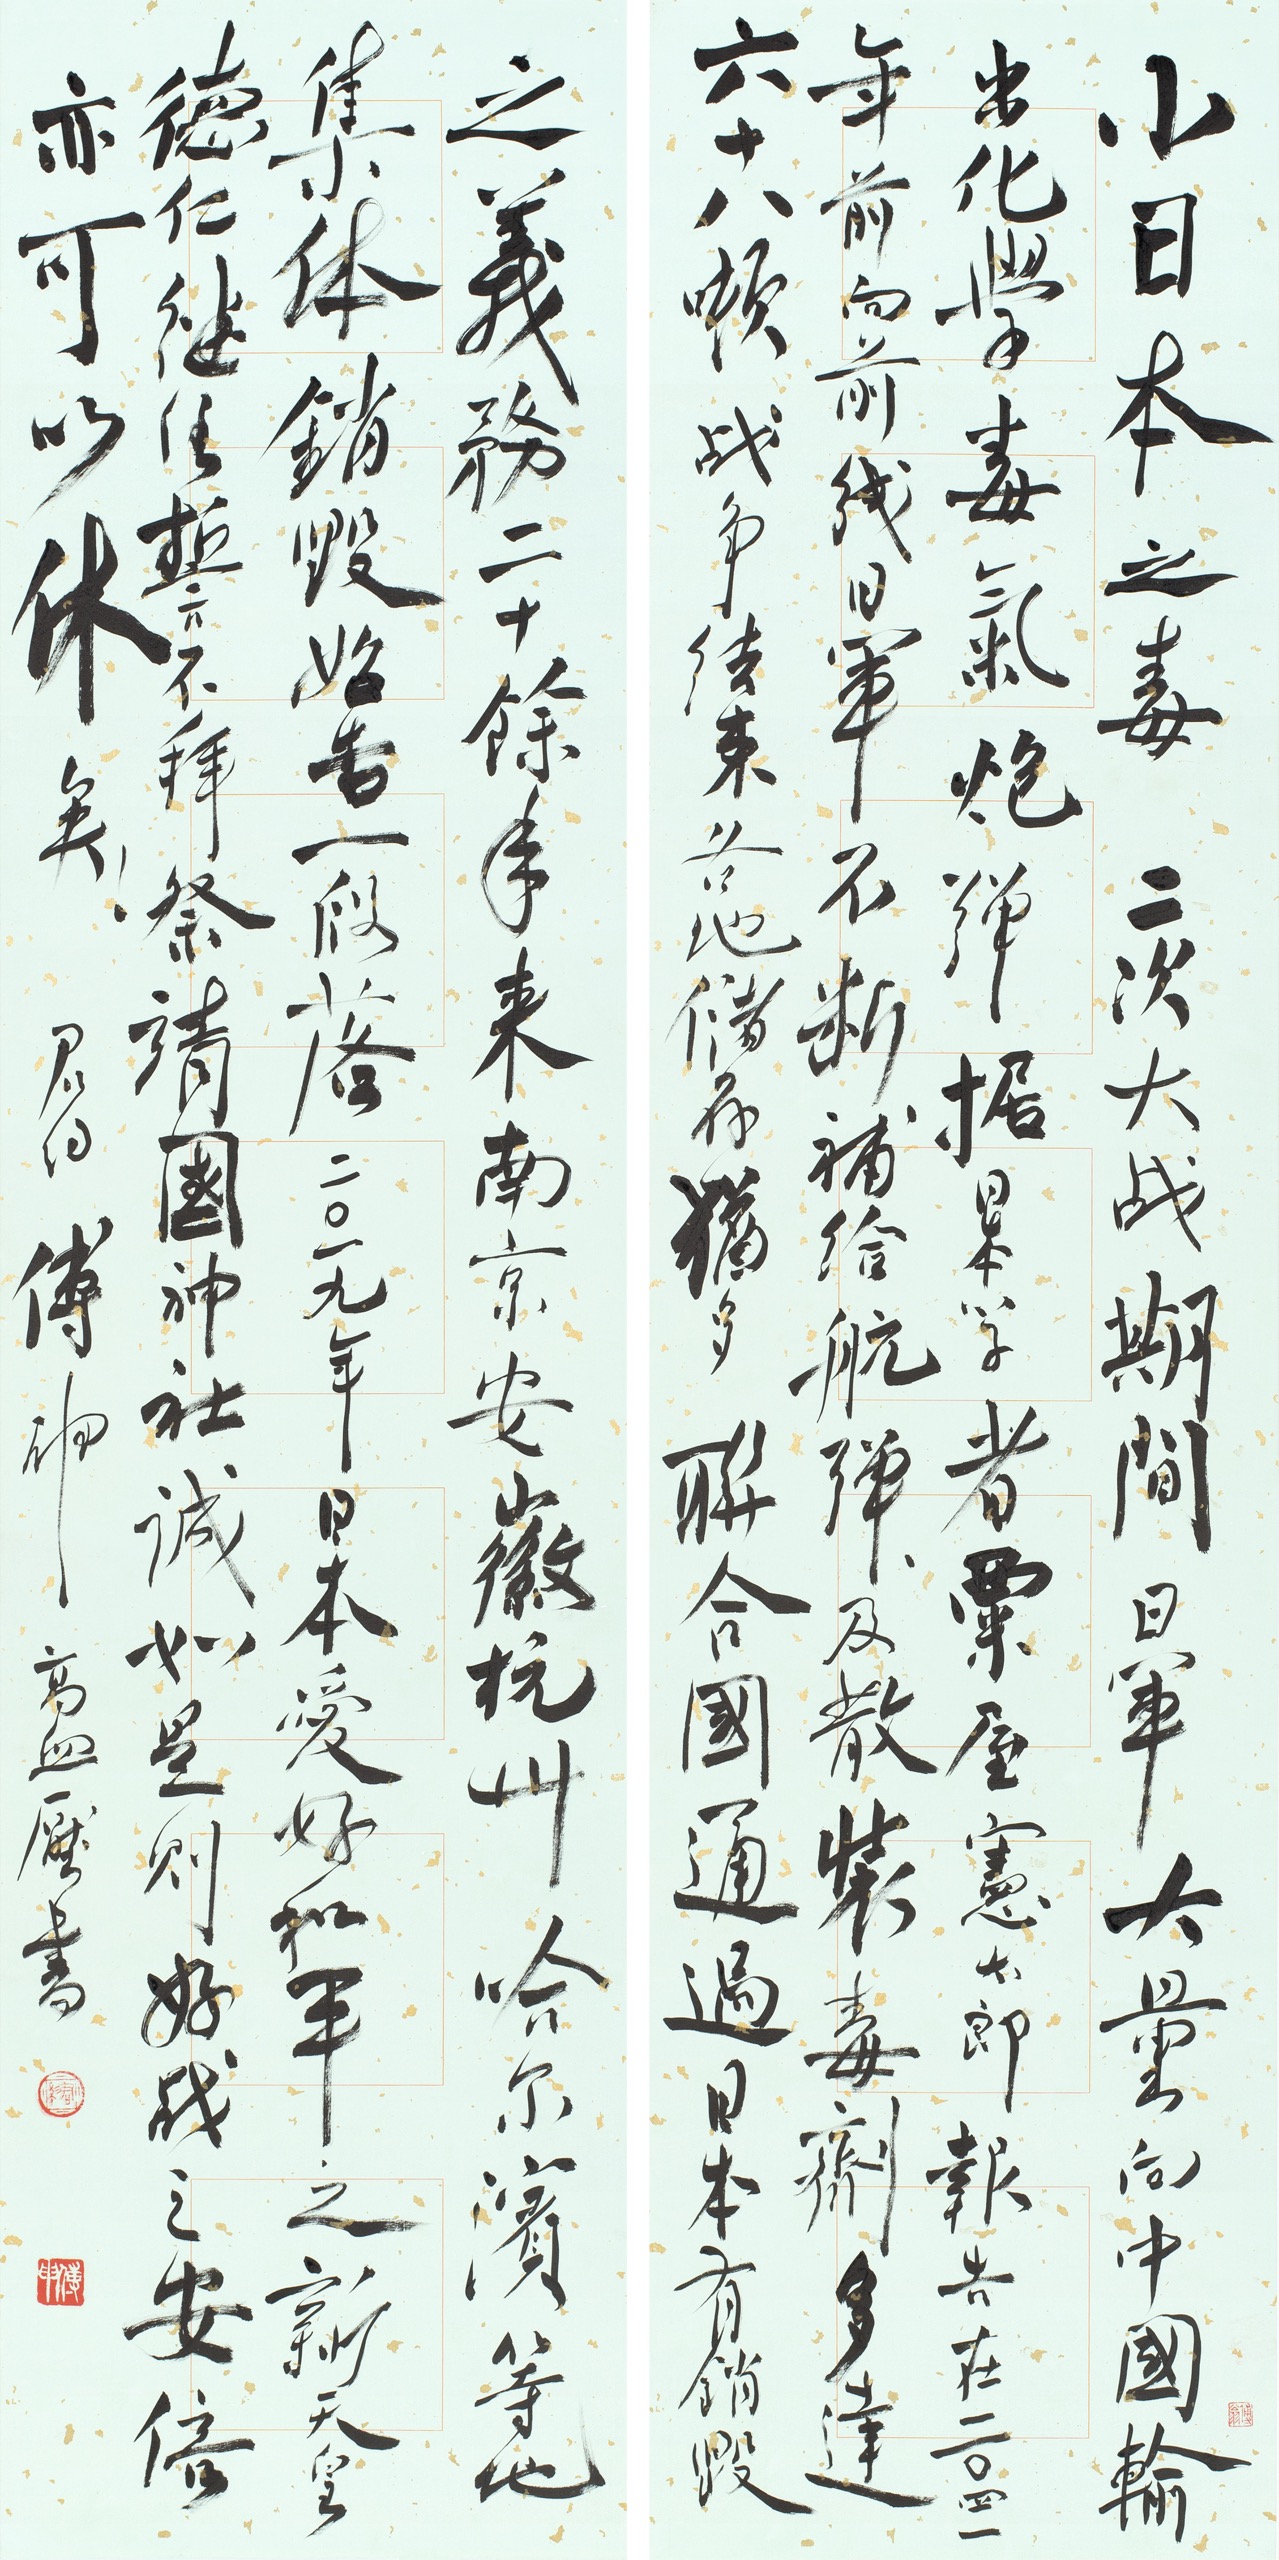 小日本之毒 二次大战期間日軍大量向中國輸
出化學毒氣炮弹 据日本学者粟屋憲太郎報告在二〇四一
年前向前线日軍不断補给航弹、及散裝毒劑多達
六十八噸战争结束各地儲存猶多 聯合國通過日本有銷毀
之義務二十餘年来南京安徽杭州哈尔濱等地
集体銷毀始告一段落 二〇一九年日本愛好和平之新天皇
徳仁继任誓言不拜祭靖國神社誠如是则好战之安倍
亦可以休矣！ 君約 傅申 高血壓書
傅申